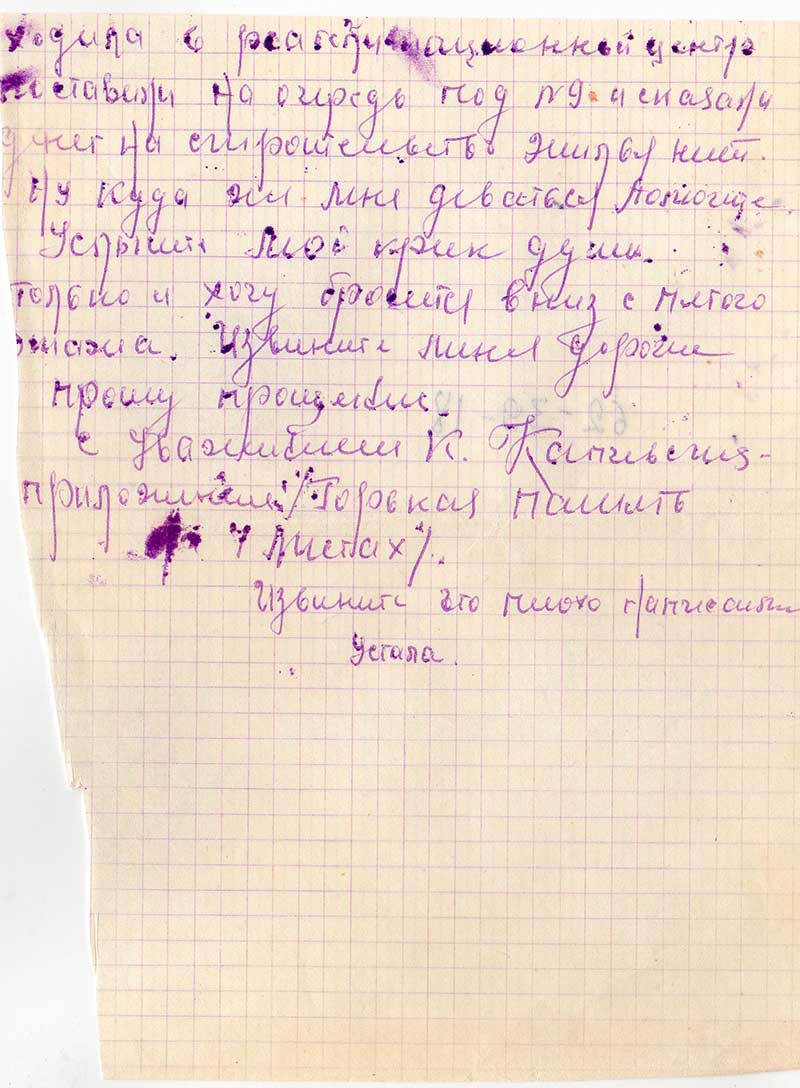 ходила в реабилитационный центр
поставили на очередь под №9. и сказали
денег на строительство жилья нет.
Ну куда же мне деваться Помогите.
Услышите мой крик души.
только и хочу бросится вниз с пятого
этажа. Извините меня дорогие
прошу прощения.
с уважением К.
приложение /Горькая память
4 листах/.
Извините что плохо написала
Устала.